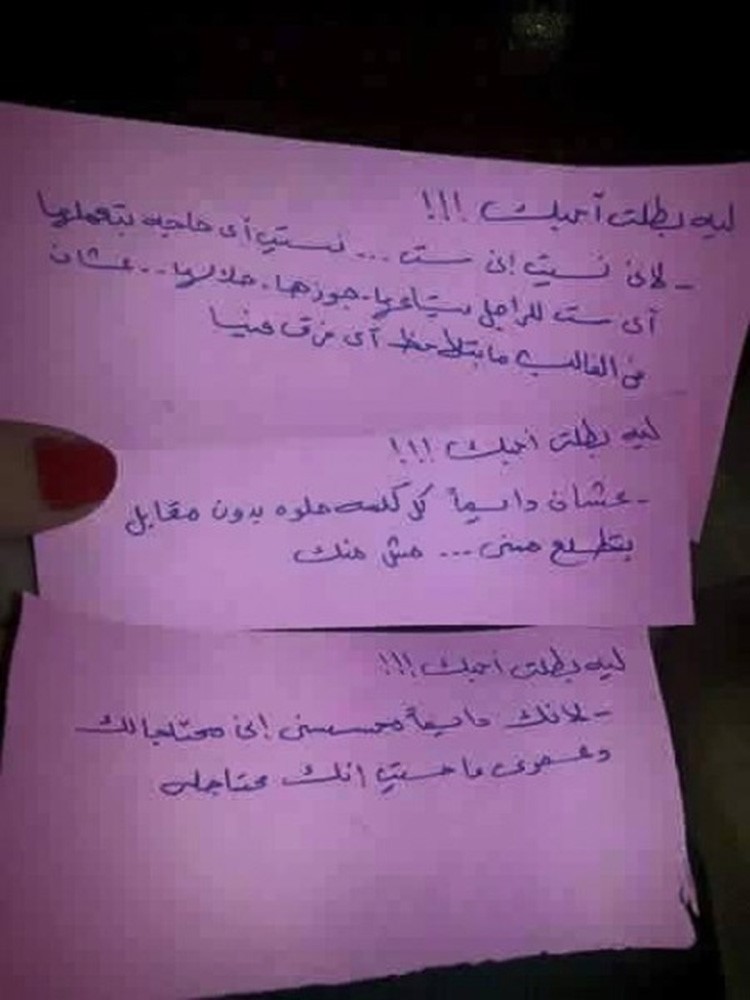 ليه بطلت أحبك !!!
- لانى نسيت إنى ست ... نسيت أى حاجه بتعملها
أى ست للراجل بتاعها - جوزها - حلالها .. عشان
فى الغالب مابتلاحظ أى فرق فينيا
ليه بطلت أحبك !!!
- عشان دايماً كل كلمه حلوه بدون مقابل
بتطلع منى ... مش منك
ليه بطلت أحبك !!!
- لانك دايماً محسسنى إنى محتاجالك
وعمرى ما حسيت انك محتاجلى